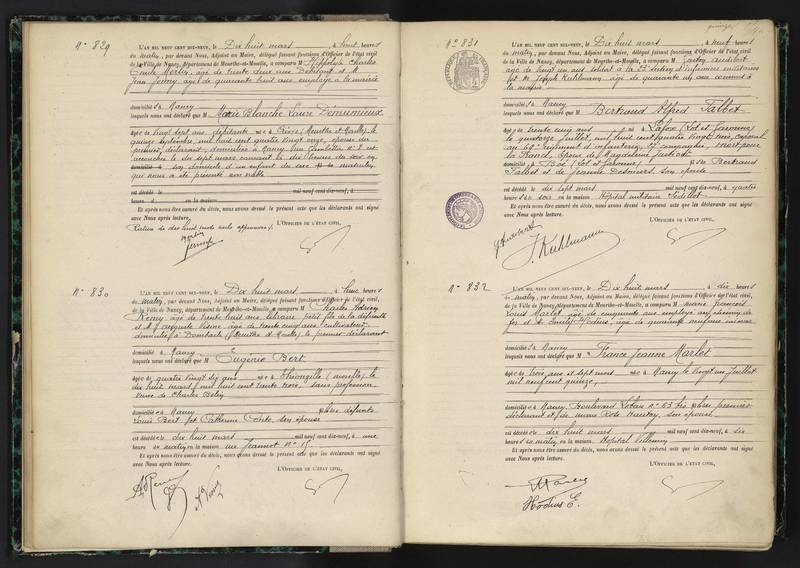 N° 829
L'AN MIL NEUF CENT DIX-NEUF, le Dix huit mars à huit heures
du matin, par devant Nous, Adjoint au Maire, délégué faisant fonctions d'Officier de l'état civil
de la Ville de Nancy, département de Meurthe-et-Moselle, a comparu M Hippolyte Charles
Emile Merlin, âgé de trente deux ans et M
Jean âgé de quarante huit ans, employé à la mairie
domicilié à Nancy
lesquels nous ont déclaré que M Marie Blanche Laure Demunieux
âgée de vingt sept ans née à (Meurthe et Moselle) le
quinze septembre, mil huit cent quatre vingt onze, épouse du
premier déclarant, domiciliée à Nancy rue Gambetta n° 8 est
accouchée le dix sept mars courant
en son domicile d'un enfant du sexe masculin,
qui nous a été présenté sans vie
est décédé le mil neuf cent dix-neuf, à
heures en la maison
Et après nous être assuré du décès, nous avons dressé le présent acte que les déclarants ont signé
avec Nous après lecture.
L'OFFICIER DE L'ÉTAT CIVIL,
N° 830
L'AN MIL NEUF CENT DIX-NEUF, le Dix huit mars à heures
du matin, par devant Nous, Adjoint au Maire, délégué faisant fonctions d'Officier de l'état civil,
de la Ville de Nancy, département de Meurthe-et-Moselle, a comparu M Charles
Rémy âgé de trente huit ans, libraire, petit fils de la défunte
et M Auguste âgé de trente cinq ans, cultivateur,
domicilié à (Meurthe et Moselle) le premier déclarant
domicilié à Nancy
lesquels nous ont déclaré que M Eugénie Bert
âgée de quatre vingt six ans née à Thionville (Moselle) le
dix huit mars, mil huit cent trente trois, sans profession,
veuve de Charles
domiciliée à Nancy fille des défunts
Louis Bert et Catherine son épouse
est décédée le dix huit mars mil neuf cent dix-neuf, à une
heure du matin en la maison rue Jeannot N° 15
Et après nous être assuré du décès, nous avons dressé le présent acte que les déclarants ont signé
avec Nous après lecture.
L'OFFICIER DE L'ÉTAT CIVIL,
N° 831
L'AN MIL NEUF CENT DIX-NEUF, le Dix huit mars à neuf heures
du matin, par devant Nous, Adjoint au Maire, délégué faisant fonctions d'Officier de l'état civil
de la Ville de Nancy, département de Meurthe-et-Moselle, a comparu M Gaston Audibert
âgé de vingt un ans soldat à la 23 section d'infirmiers militaires
et M Joseph Kuhlmann, âgé de quarante un ans, commis à
la mairie
domiciliés à Nancy
lesquels nous ont déclaré que M Bertrand Alfred Talbet
âgé de trente cinq ans né à (Lot et Garonne)
le quatorze juillet, mil huit cent quatre vingt trois, caporal
au régiment d'infanterie, compagnie, mort pour
la France, époux de Magdeleine
domicilié à (Lot et Garonne) fils de Bertrand
Talbet et de Jeanne son épouse,
est décédé le dix sept mars mil neuf cent dix-neuf, à quatre
heures du soir en la maison Hôpital militaire Sédillot
Et après nous être assuré du décès, nous avons dressé le présent acte que les déclarants ont signé
avec Nous après lecture.
L'OFFICIER DE L'ÉTAT CIVIL,
J. Kuhlmann
N° 832
L'AN MIL NEUF CENT DIX-NEUF, le Dix huit mars à dix heures
du matin, par devant Nous, Adjoint au Maire, délégué faisant fonctions d'Officier de l'état civil
de la Ville de Nancy, département de Meurthe-et-Moselle, a comparu M Marie François
Louis Marlet âgé de cinquante ans employé au chemin de
fer et M Emile Hodius, âgé de quarante neuf ans
domiciliés à Nancy
lesquels nous ont déclaré que M France Jeanne Marlet
âgée de trois ans et sept mois née à Nancy le vingt un juillet
mil neuf cent quinze,
domiciliée à Nancy, Boulevard Lobau n° 63 bis fille du premier
déclarant et de Marie Rose son épouse,
est décédée le dix huit mars mil neuf cent dix-neuf, à six
heures du matin en la maison Hôpital Villemin
Et après nous être assuré du décès, nous avons dressé le présent acte que les déclarants ont signé
avec Nous après lecture.
L'OFFICIER DE L'ÉTAT CIVIL,
Hodius E.